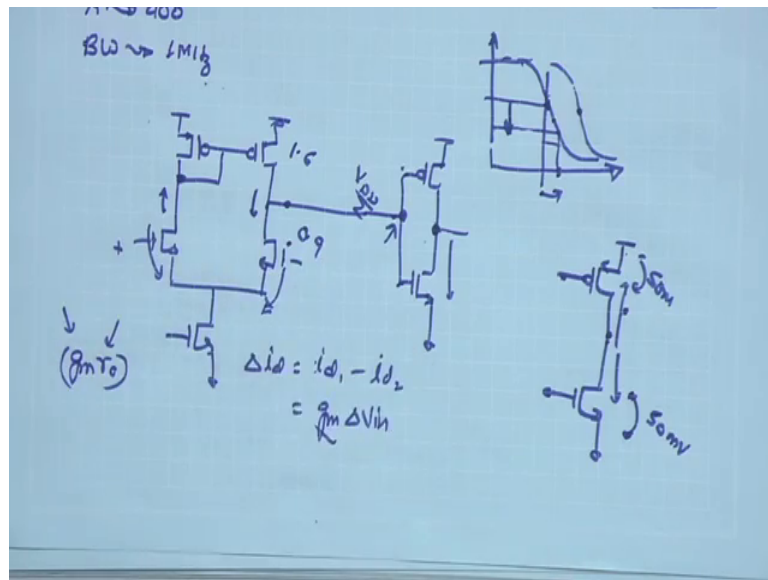 BW ~> 1MHz
1.5
0.9
+
-
(gm ro)
Δid = id1 - id2
= gm ΔVin
50mV
50mV